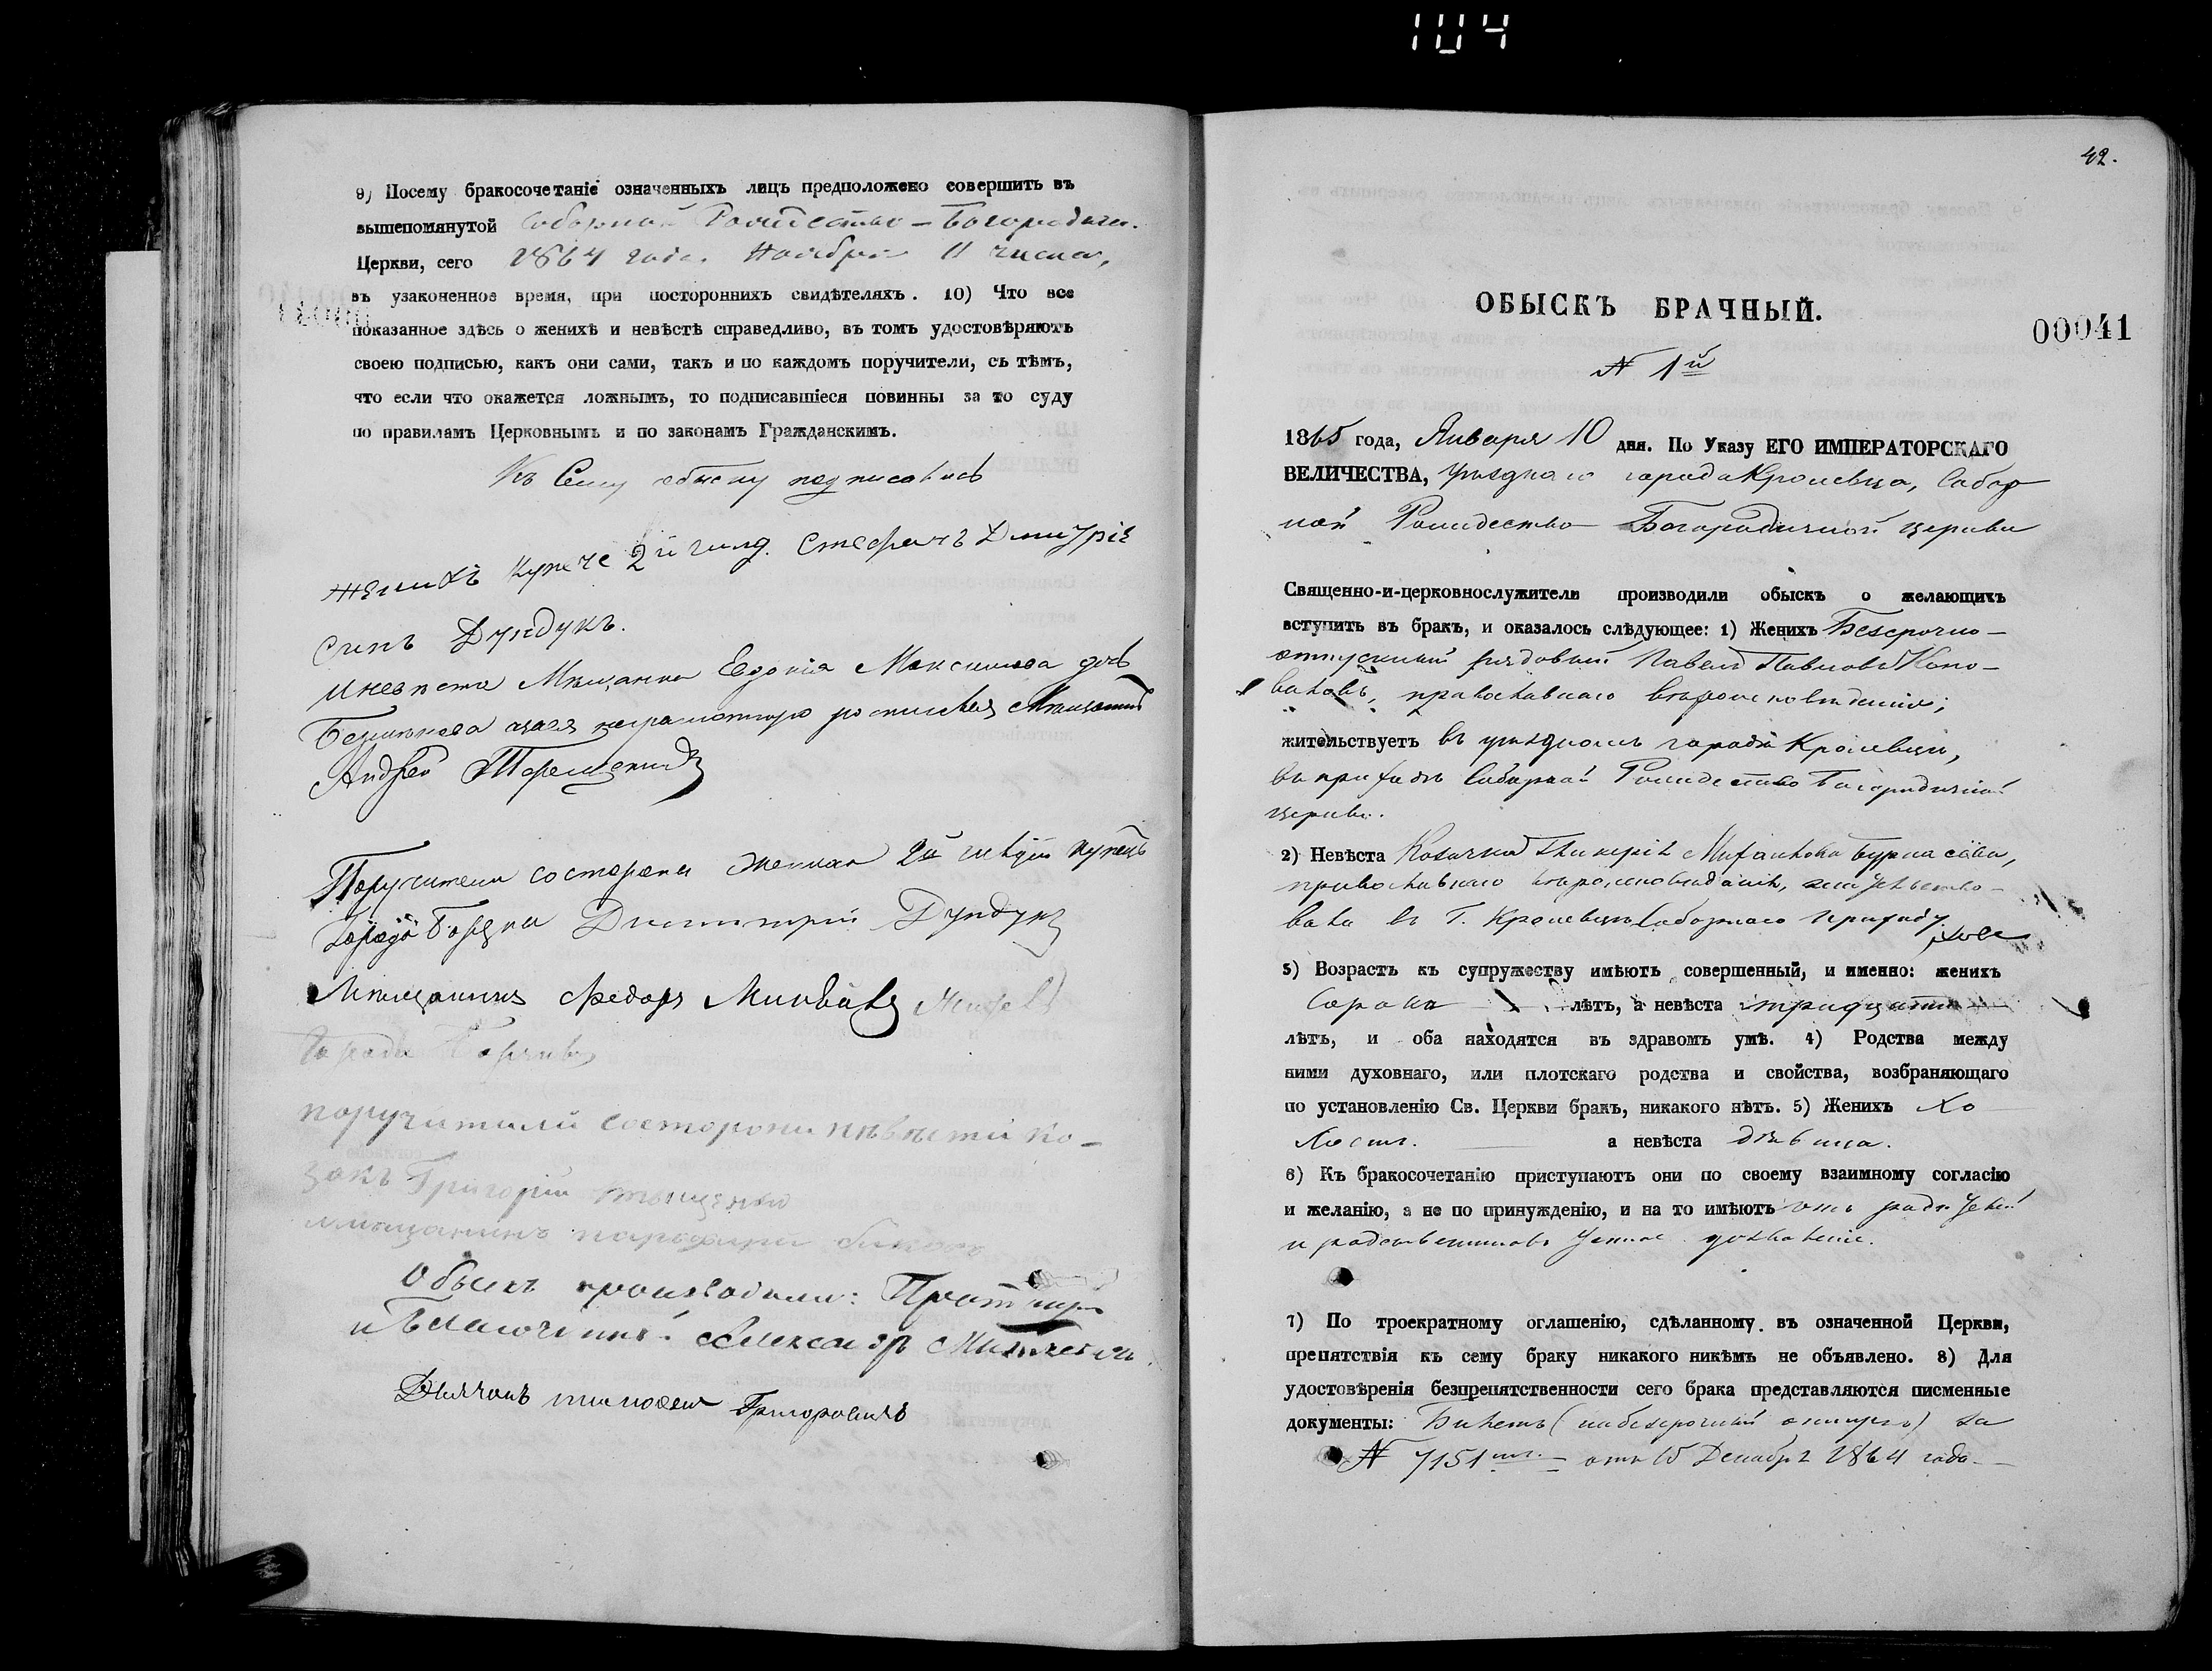 104
9) Посему бракосочетаніе означенныхъ лицъ предположено совершить въ
вышепомянутой Соборной Рождество-Богородичн.
Церкви, сего 1864 года Ноября 11 числа,
въ узаконенное время, при постороннихъ свидѣтеляхъ. 10) Что все
показанное здѣсь о женихѣ и невѣстѣ справедливо, въ томъ удостовѣряютъ
своею подписью, какъ они сами, такъ и по каждомъ поручители, съ тѣмъ,
что если что окажется ложнымъ, то подписавшіеся повинны за то суду
по правиламъ Церковнымъ и по законамъ Гражданскимъ.
Къ Сему обыску подписались
Женихъ купече 2й гилд. Стефанъ Дмитріе
синъ Дундукъ.
И невеста Мещанка Евдокія Максимова дочь
неграмотную росписался Мещанинъ
Андрей Терещенко
Поручители состороны жениха 2й гилдіи купецъ
города Борзны Димитрій Дундукъ
Мещанинъ Федоръ
Города Борзны
поручители состороны невести ко-
закъ Григорій
мещанинъ
Обыскъ производили: Протоіерей
и Благочинный Александръ
Діяконъ Тимофей Григоровичъ
42.
ОБЫСКЪ БРАЧНЫЙ.
00041
N 1й
1865 года, Января 10 дня. По Указу ЕГО ИМПЕРАТОРСКАГО
ВЕЛИЧЕСТВА, уѣзднаго города Кролевца, Собор
ной Рождество-Богородичной церкви
Священно-и-церковнослужители производили обыскъ о желающихъ
вступить въ бракъ, и оказалось слѣдующее: 1) Женихъ Безсрочно-
отпускный рядовый Павелъ Павловъ Коно-
валовъ, православнаго вѣроисповѣданія;
жительствуетъ въ уѣздномъ городѣ Кролевцѣ,
въ приходѣ Соборной Рождество Богородичной
церкви.
2) Невѣста Козачка Гликерія Михайлова
православнаго вѣроисповѣданія, жительство-
вала въ Г. Кролевцѣ Соборнаго приходу.
3) Возрастъ къ супружеству имѣютъ совершенный, и именно: женихъ
Сорока лѣтъ, а невѣста тридцати
лѣтъ, и оба находятся въ здравомъ умѣ. 4) Родства между
ними духовнаго, или плотскаго родства и свойства, возбраняющаго
по установленію Св. Церкви бракъ, никакого нѣтъ. 5) Женихъ Хо
лостъ. а невѣста дѣвица.
6) Къ бракосочетанію приступаютъ они по своему взаимному согласію
и желанію, а не по принужденію, и на то имѣютъ отъ родителей
и родственниковъ устное дозволеніе.
7) По троекратному оглашенію, сдѣланному въ означенной Церкви,
препятствія къ сему браку никакого никѣмъ не объявлено. 8) Для
удостовѣренія безпрепятственности сего брака представляются писменные
документы: Билетъ (на безсрочный отпускъ) за
N 7151мъ отъ 15 Декабря 1864 года